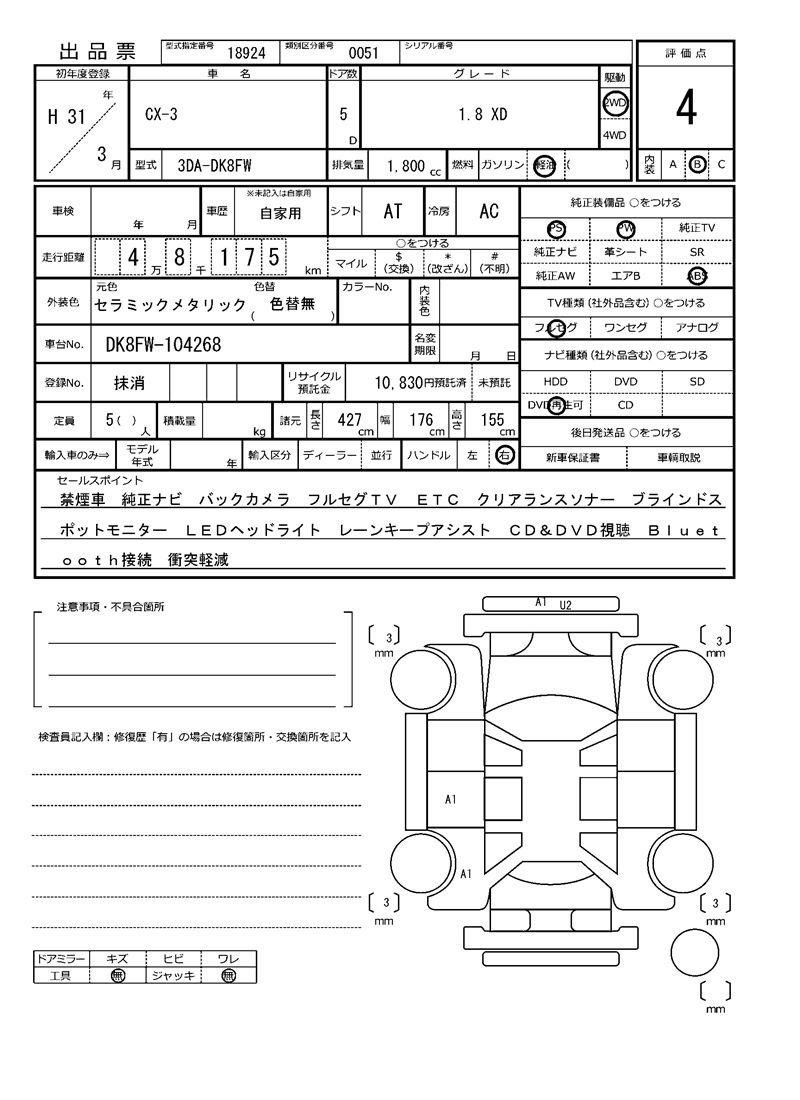 出品票 型式指定番号 18924 類別区分番号 0051 シリアル番号
評価点
初年度登録 車名 ドア数 グレード 駆動
H 31 年 3 月 CX-3 5 D 1.8 XD 2WD 4WD
4
型式 3DA-DK8FW 排気量 1,800 cc 燃料 ガソリン 軽油 ( )
内装 A B C
車検 年 月 車歴 ※未記入は自家用 自家用 シフト AT 冷房 AC
純正装備品 ○をつける
PS PW 純正TV
走行距離 4 万 8 千 1 7 5 km ○をつける
マイル $ (交換) * (改ざん) # (不明)
純正ナビ 革シート SR
純正AW エアB ABS
外装色 元色 セラミックメタリック 色替 ( 色替無 ) カラーNo. 内装色
TV種類 (社外品含む) ○をつける
フルセグ ワンセグ アナログ
車台No. DK8FW-104268 名変期限 月 日
ナビ種類 (社外品含む) ○をつける
登録No. 抹消 リサイクル預託金 10,830円預託済 未預託
HDD DVD SD
DVD再生可 CD
定員 5( ) 人 積載量 kg 諸元 長さ 427 cm 幅 176 cm 高さ 155 cm
後日発送品 ○をつける
輸入車のみ⇒ モデル年式 年 輸入区分 ディーラー 並行 ハンドル 左 右
新車保証書 車輌取説
セールスポイント
禁煙車 純正ナビ バックカメラ フルセグTV ETC クリアランスソナー ブラインドス
ポットモニター LEDヘッドライト レーンキープアシスト CD&DVD視聴 Bluet
ooth接続 衝突軽減
注意事項・不具合箇所
A1 U2
3 mm
3 mm
検査員記入欄：修復歴「有」の場合は修復箇所・交換箇所を記入
A1
A1
3 mm
3 mm
ドアミラー キズ ヒビ ワレ
工具 無 ジャッキ 無
mm